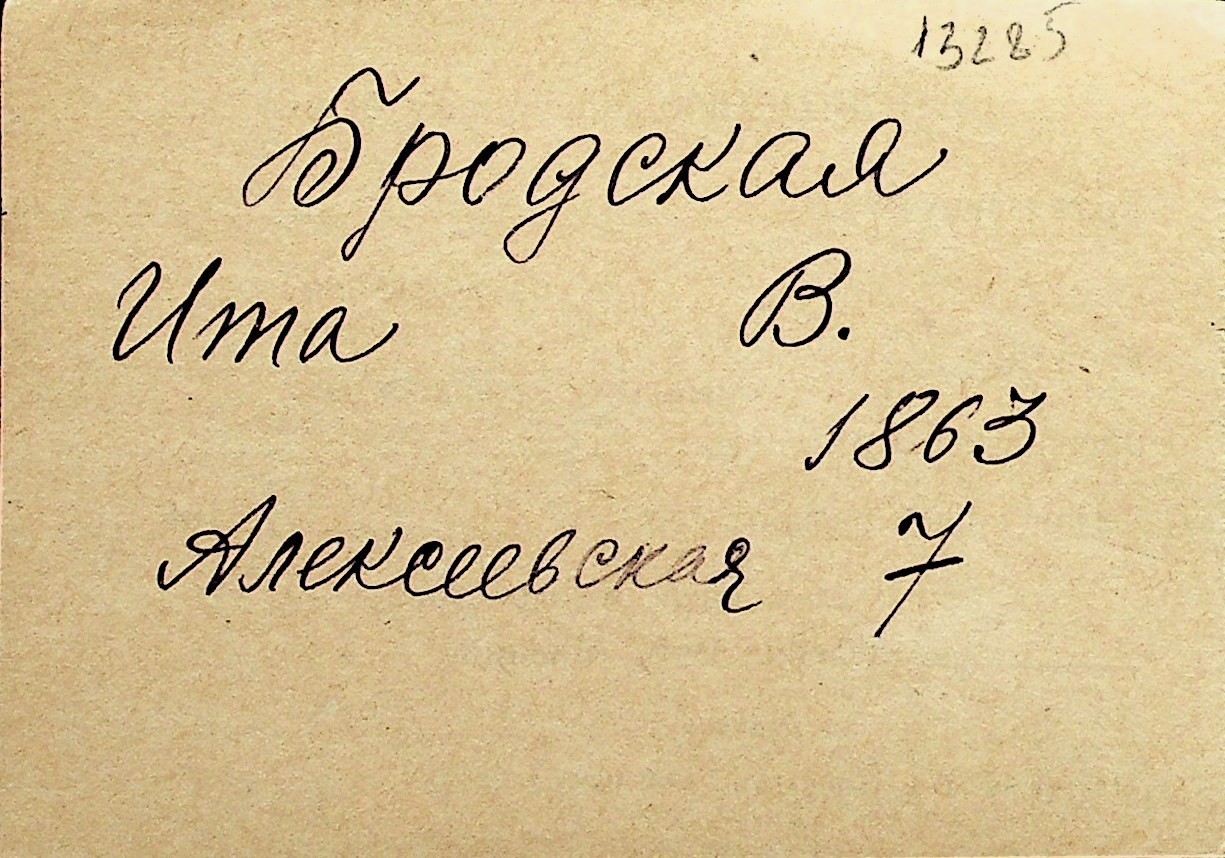 13285
Бродская
Ита В.
1863
Алексеевская 7